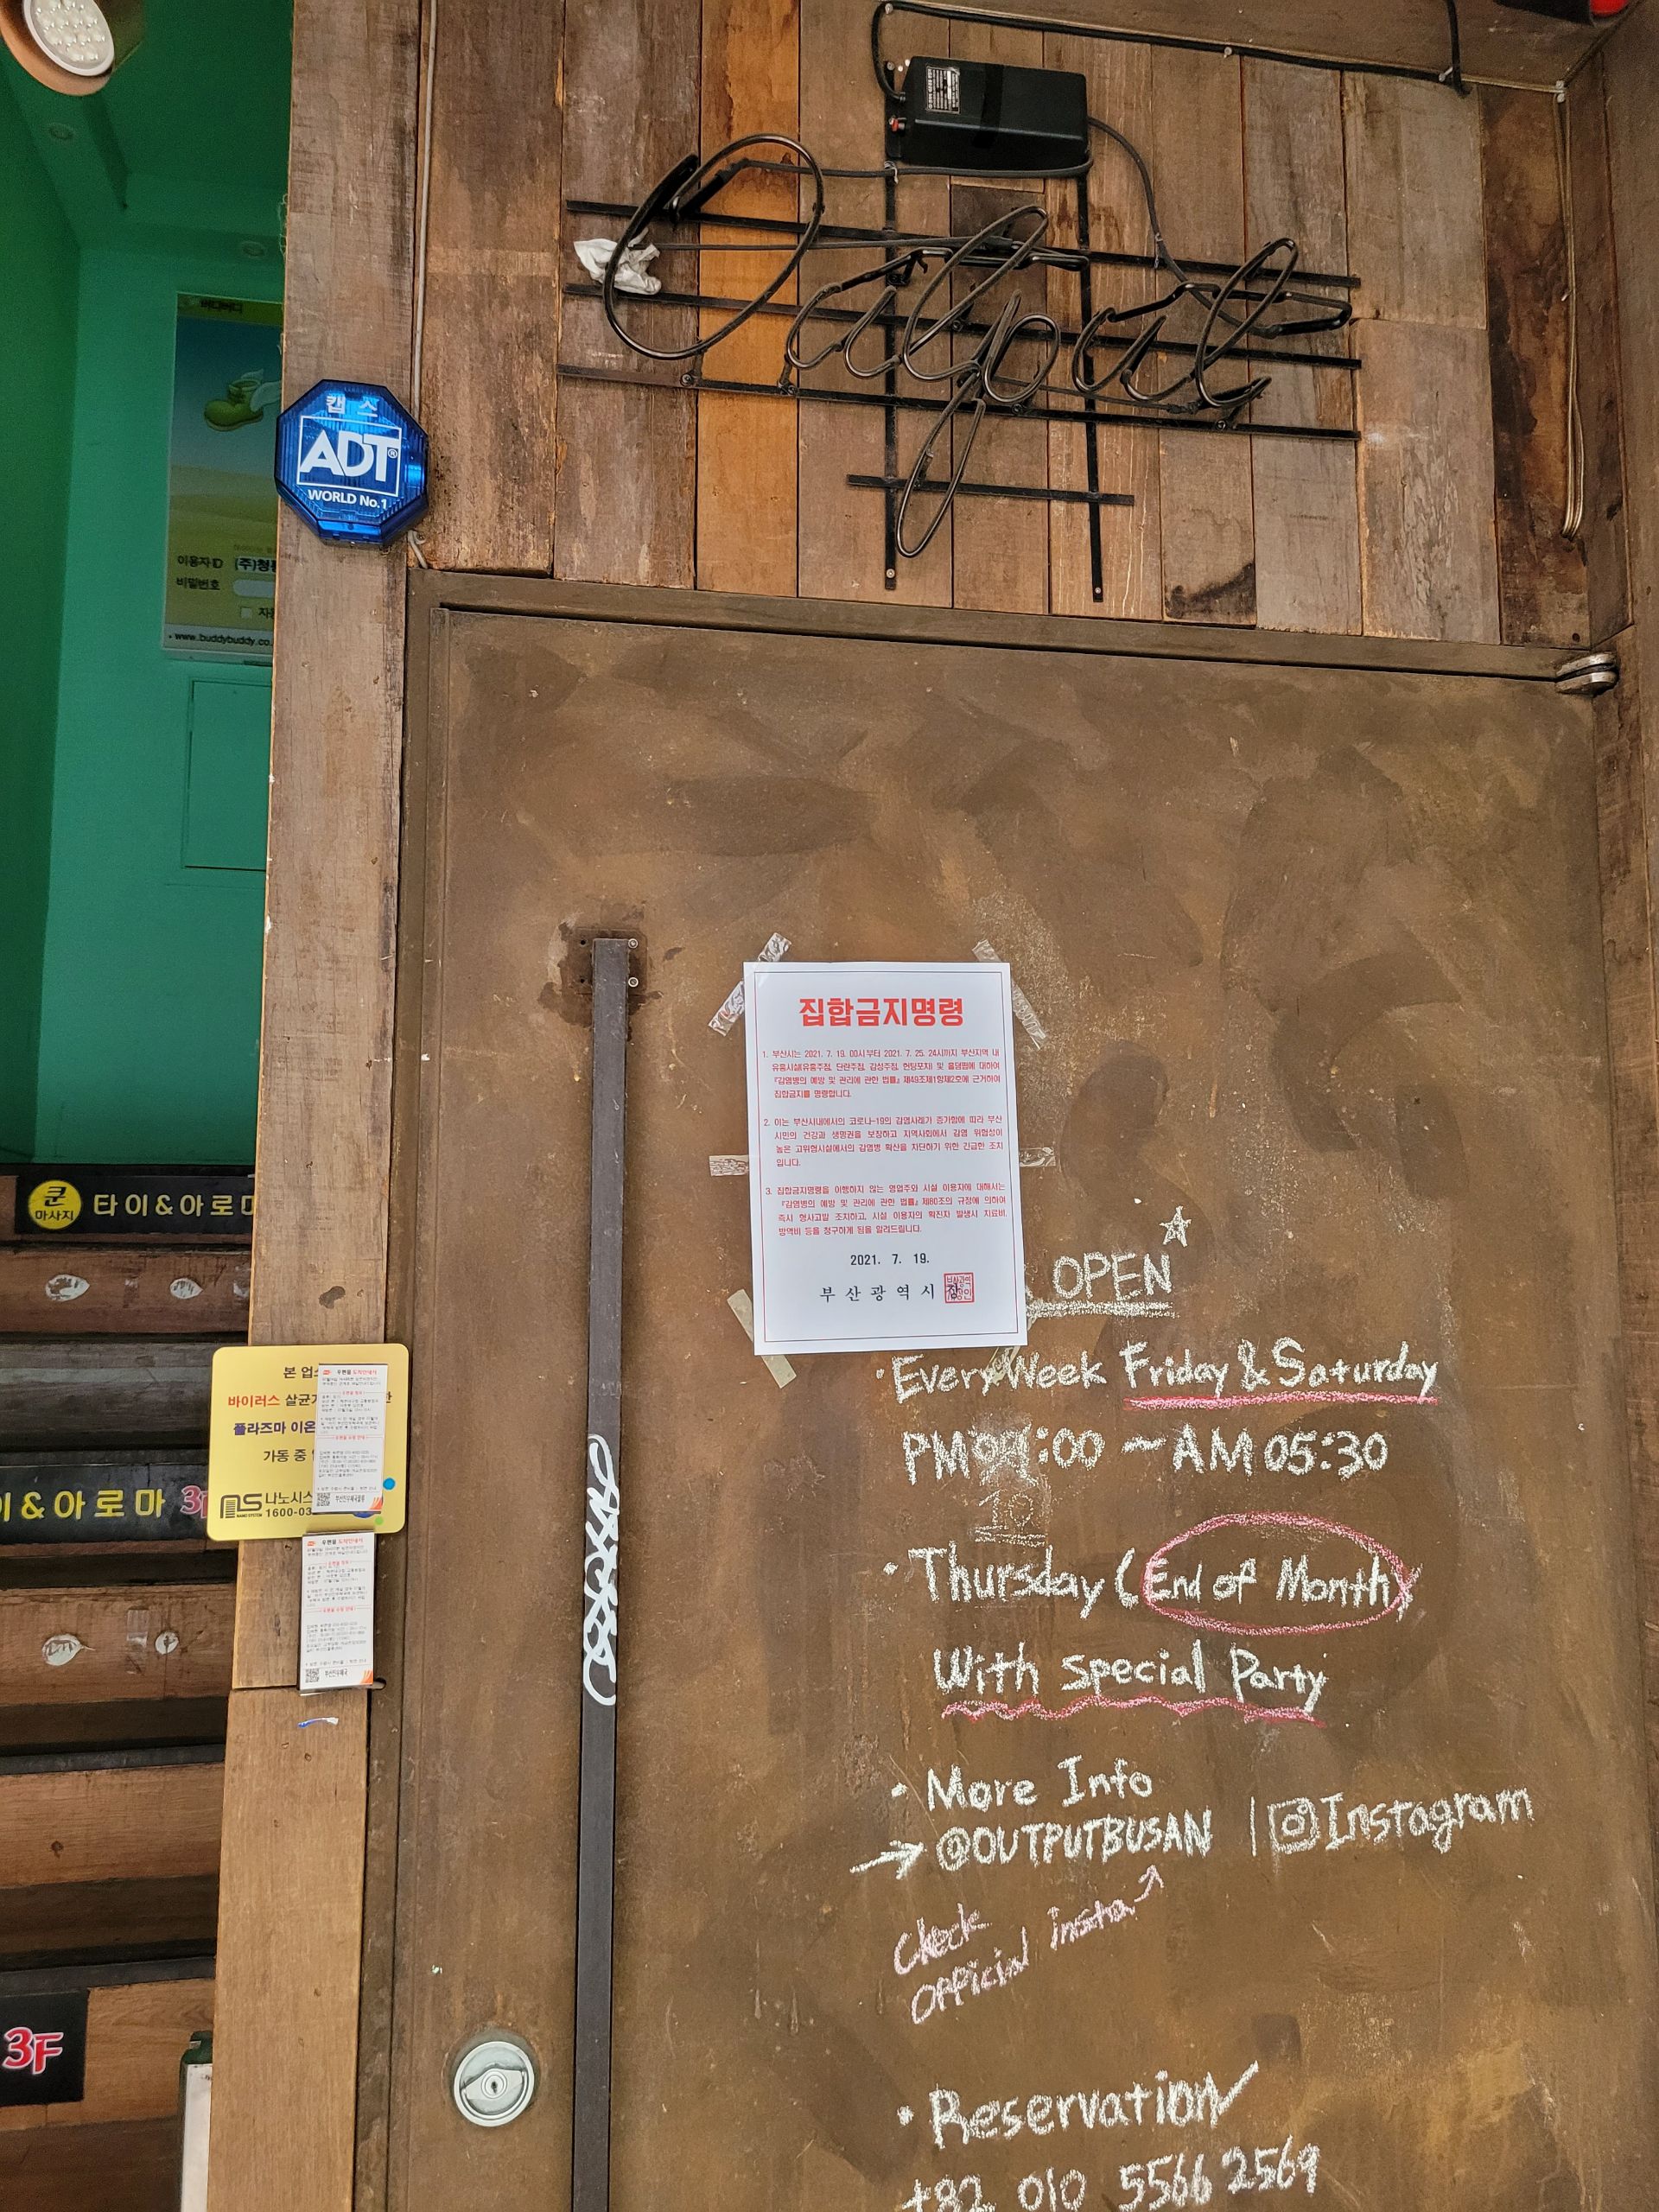 Output
캡스
ADT®
WORLD No.1
버디버디
이용자 ID (주)청
비밀번호
www.buddybuddy.co.
집합금지명령
1. 부산시는 2021. 7. 19. 00시부터 2021. 7. 25. 24시까지 부산지역 내
유흥시설(유흥주점, 단란주점, 감성주점, 헌팅포차) 및 홀덤펍에 대하여
『감염병의 예방 및 관리에 관한 법률』 제49조제1항제2호에 근거하여
집합금지를 명령합니다.
2. 이는 부산시내에서의 코로나-19의 감염사례가 증가함에 따라 부산
시민의 건강과 생명권을 보장하고 지역사회에서 감염 위험성이
높은 고위험시설에서의 감염병 확산을 차단하기 위한 긴급한 조치
입니다.
3. 집합금지명령을 이행하지 않는 영업주와 시설 이용자에 대해서는
『감염병의 예방 및 관리에 관한 법률』 제80조의 규정에 의하여
즉시 형사고발 조치하고, 시설 이용자의 확진자 발생시 치료비,
방역비 등을 청구하게 됨을 알려드립니다.
2021. 7. 19.
부산광역시장
쿤
마사지
타이&아로마
OPEN
· Every Week Friday & Saturday
PM :00 ~ AM 05:30
10
· Thursday (End of Month)
With Special Party
· More Info
→ @OUTPUTBUSAN | Instagram
Check
Official insta
· Reservation
+82 010 5566 2569
본 업소
바이러스 살균
플라즈마 이온
가동 중
나노시스
NANO SYSTEM 1600-03
우편물 도착안내서
우편물 도착안내서
이&아로마 3F
3F